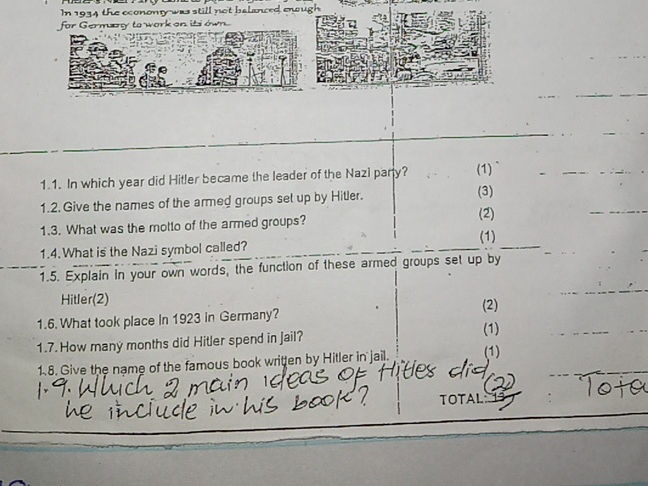 In 1934 the economy was still not balanced enough
for Germany to work on its own.
1.1. In which year did Hitler became the leader of the Nazi party? (1)
1.2. Give the names of the armed groups set up by Hitler. (3)
1.3. What was the motto of the armed groups? (2)
1.4. What is the Nazi symbol called? (1)
1.5. Explain in your own words, the function of these armed groups set up by
Hitler(2)
1.6. What took place In 1923 in Germany? (2)
1.7. How many months did Hitler spend in jail? (1)
1.8. Give the name of the famous book written by Hitler in jail. (1)
1.9. Which 2 main ideas of Hitles did
he include in his book? (2)
TOTAL: :
Tota